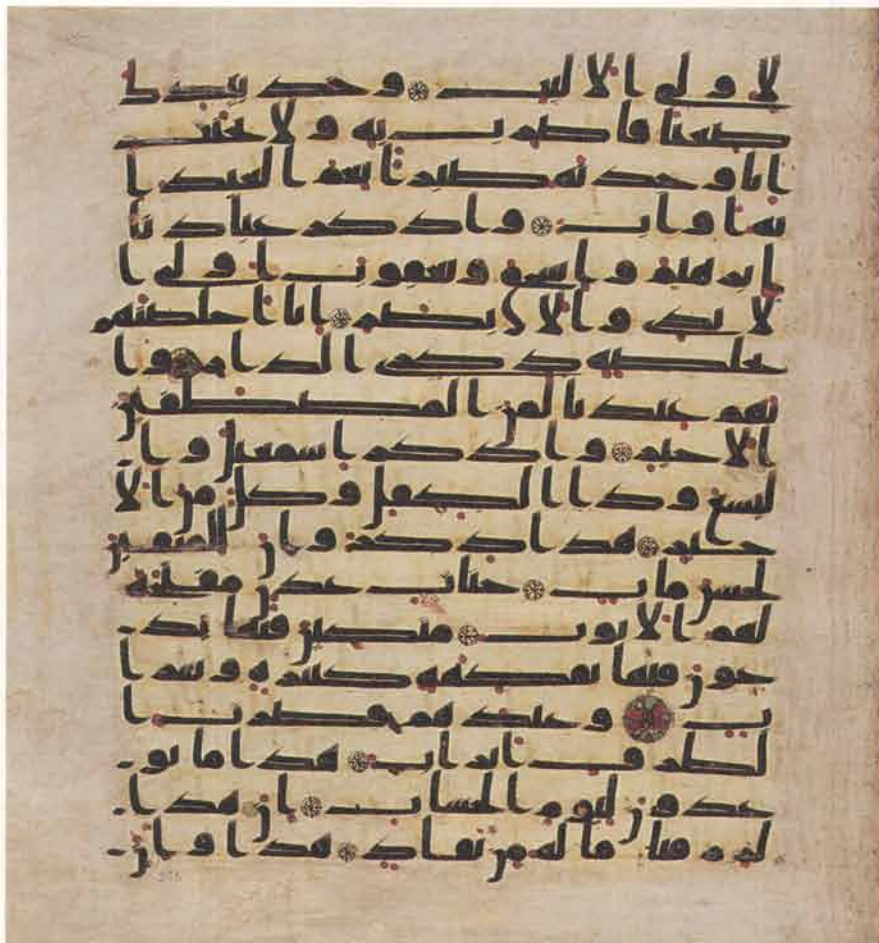 لاولى الالبب وخذ بيدك
ضغثا فاضرب به ولا تحنث
انا وجدنه صابرا نعم العبد ا
نه اواب واذكر عبادنا
ابرهيم واسحق ويعقوب اولى ا
لايدى والابصر انا اخلصنهم
بخالصه ذكرى الدار وا
نهم عندنا لمن المصطفين
الاخير واذكر اسمعيل وا
ليسع وذا الكفل وكل من الا
خير هذا ذكر وان للمتقين
لحسن ماب جنات عدن مفتحه
لهم الابوب متكين فيها يد
عون فيها بفكهه كثيره وشرا
ب وعندهم قصرت ا
لطرف اتراب هذا ما تو
عدون ليوم الحساب ان هذا
لرزقنا ما له من نفاد هذا وان